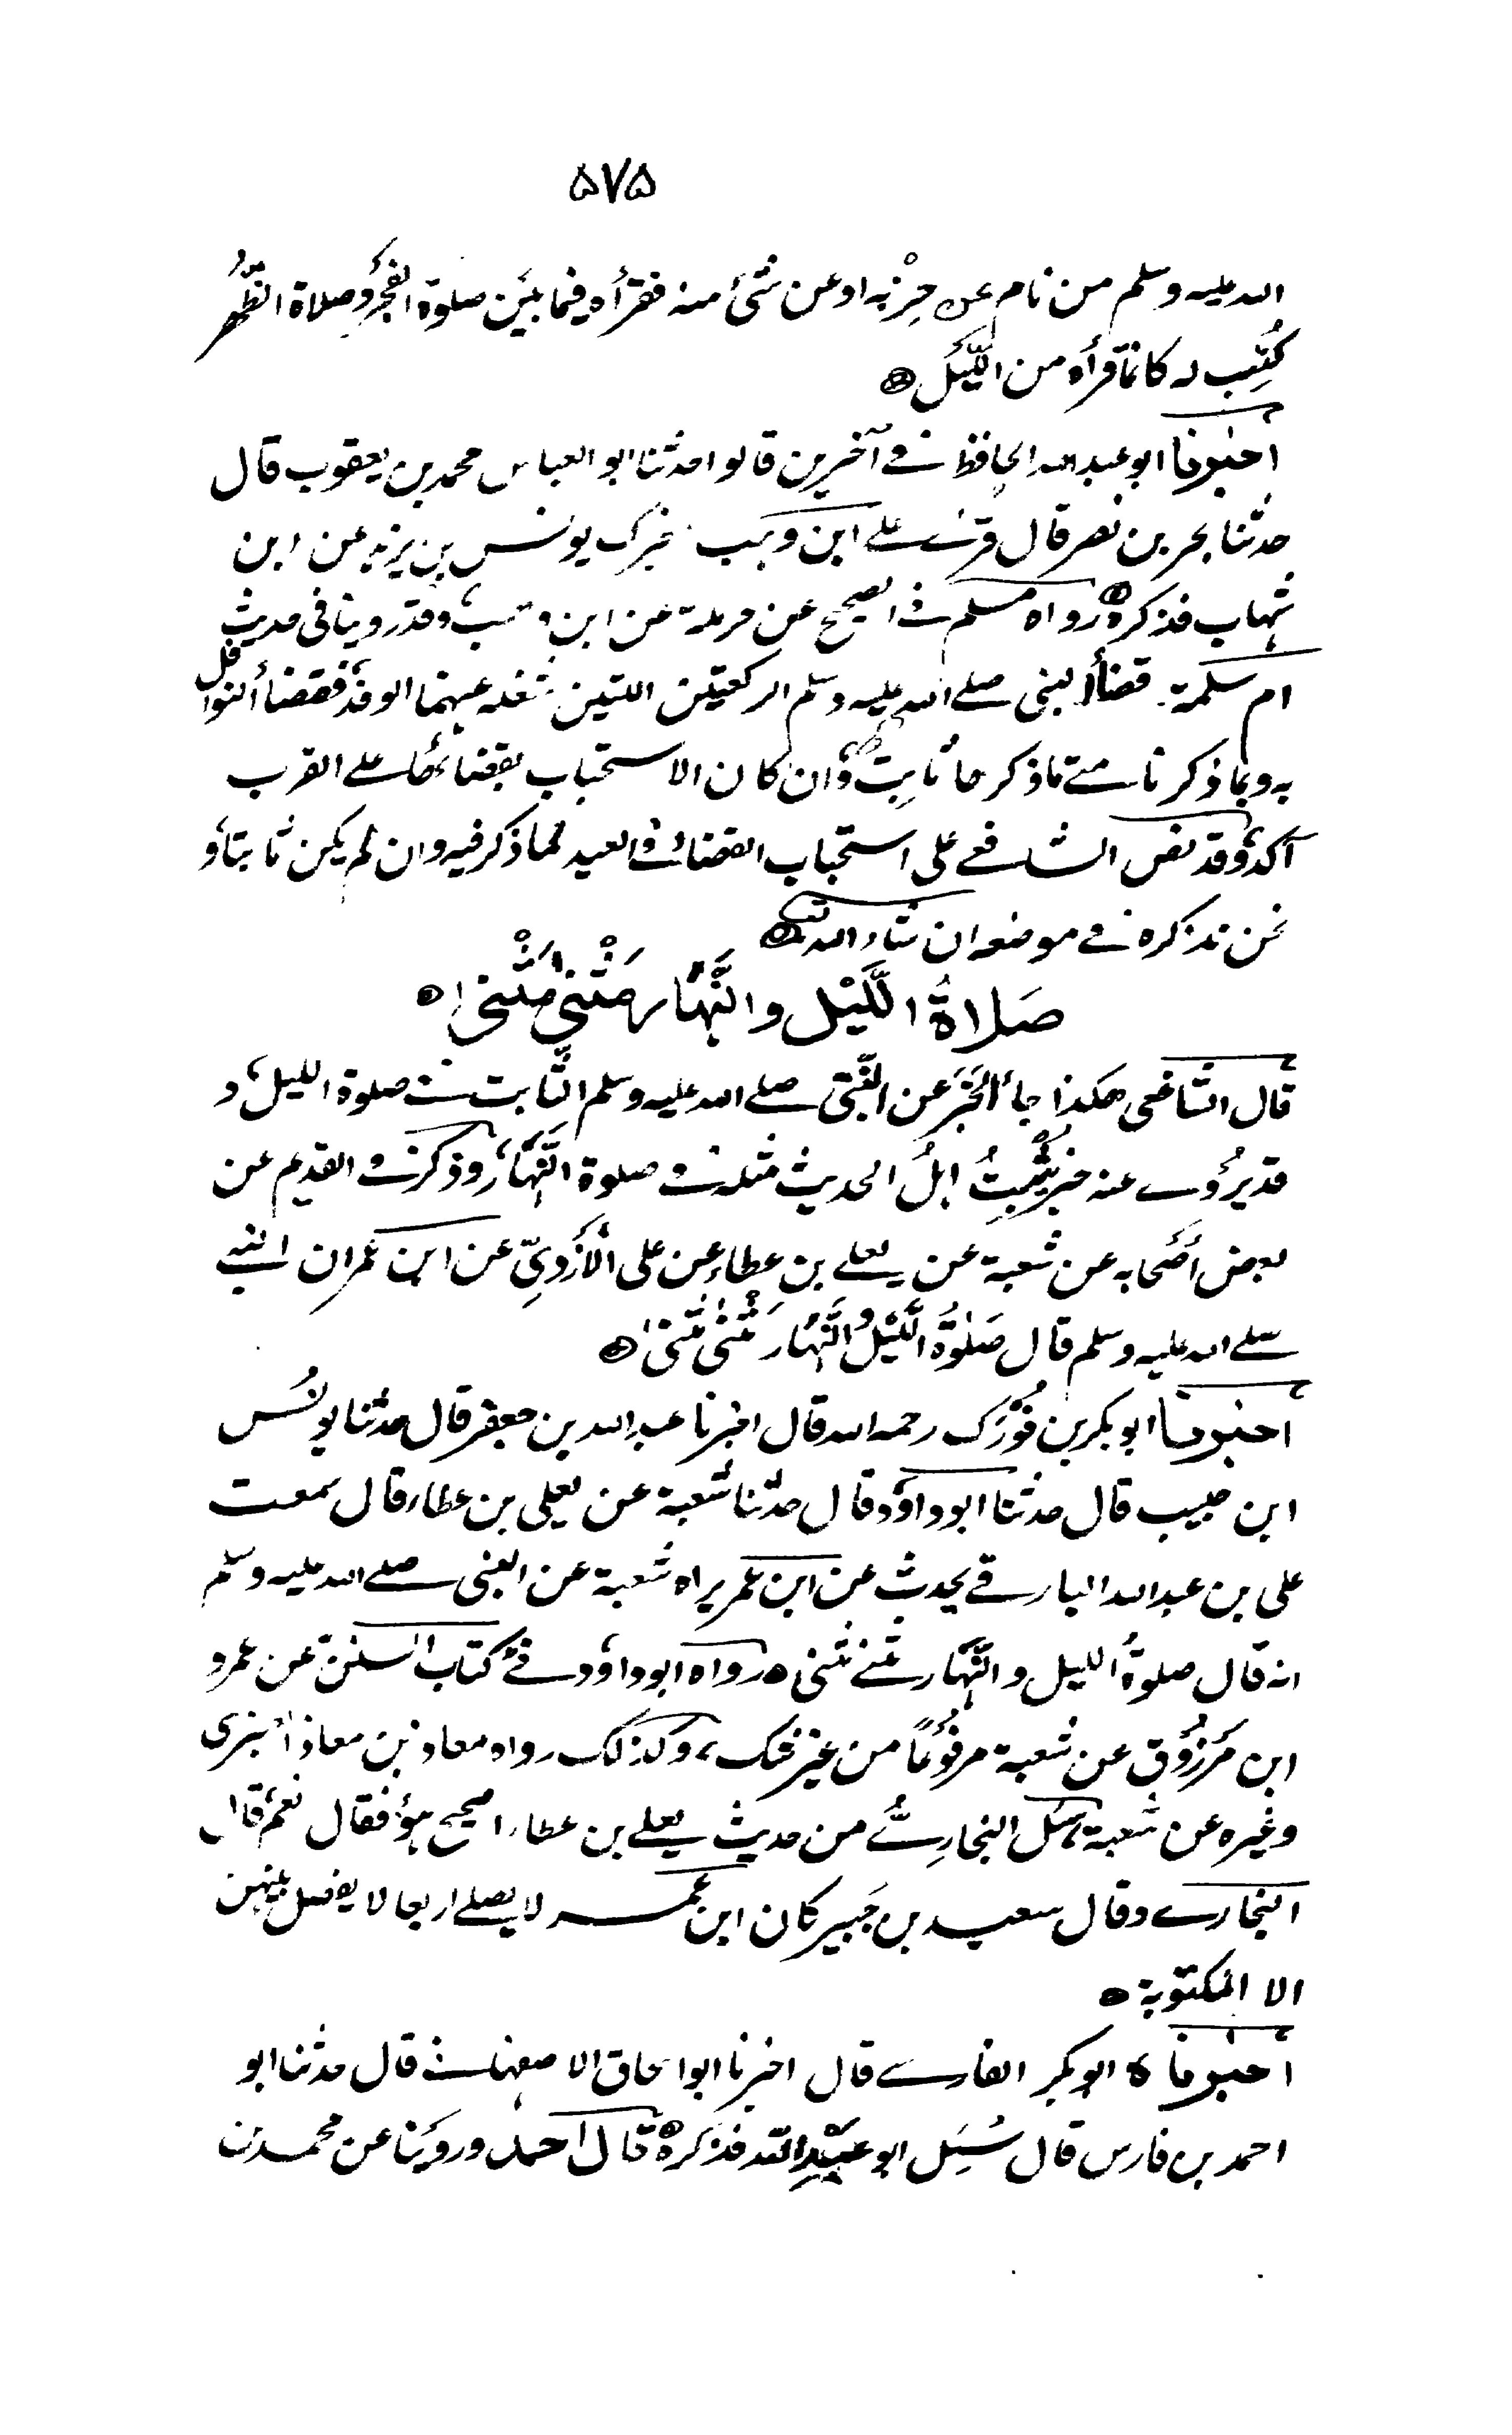 ٥٧٥
الله عليه وسلم من نام عن حِزْبه او عن شئ منه فقرأه فيما بين صلوة الفجر وصلاة الظُّهر
كُتِب له كانما قرأه من اللَّيل
أخبرنا ابو عبد الله الحافظ في آخرين قالوا حدثنا ابو العباس محمد بن يعقوب قال
حدثنا بحر بن نصر قال قرئ على ابن وهب اخبرك يونس بن يزيد عن ابن
شهاب فذكره رواه مسلم في الصحيح عن حرملة عن ابن وهب وقد روينا في حديث
ام سلمة قضأ النبي صلى الله عليه وسلم الركعتين اللتين شغله عنهما الوفد فقضأ النوافل
به وبما ذكرنا متى ما ذكرها ثابت وان كان الاستحباب بقضائها على القرب
آكد وقد نص الشافعي على استحباب القضأ في العيد لما ذكر فيه وان لم يكن ثابتا و
نحن نذكره في موضعه ان شاء الله تعالى
صَلاةُ اللَّيْل والنَّهَار مَثْنى مَثْنى
قال الشافعي هكذا جأ الخبر عن النَّبي صلى الله عليه وسلم الثَّابت في صلوة الليل و
قد يروى عنه خبر يُثْبِتُ اهلُ الحديث مثله في صلوة النَّهَار وذكر في القديم عن
بعض أصحابه عن شعبة عن يعلى بن عطاء عن على الأزدِيّ عن ابن عمر ان النبي
صلى الله عليه وسلم قال صَلوةُ اللَّيْل والنَّهَار مَثْنى مَثْنى
أخبرنا ابو بكر بن فُوْرَك رحمه الله قال اخبرنا عبد الله بن جعفر قال حدثنا يونُس
ابن حبيب قال حدثنا ابو داؤد قال حدثنا شعبة عن يعلى بن عطاء قال سمعت
على بن عبد الله البارقي يحدث عن ابن عمر يراه شعبة عن النبي صلى الله عليه وسلم
انه قال صلوةُ الليل والنَّهَار مثنى مثنى رواه ابو داؤد في كتاب السنن عن عمرو
ابن مَرزُوق عن شعبة مرفُوعًا من غير شك وكذلك رواه معاذ بن معاذ العنبري
وغيره عن شعبة سئل البخارِيُّ من حديث يعلى بن عطاء اصحيح هو فقال نعم قال
البخاري وقال سعيد بن جُبير كان ابن عمر لا يصلى اربعا لا يفصل بينهن
الا المكتوبة
أخبرناه ابو بكر الفارسي قال اخبرنا ابو اسحاق الاصفهاني قال حدثنا ابو
احمد بن فارس قال سُئِل ابو عبد الله فذكره قال احمد وروينا عن محمد بن